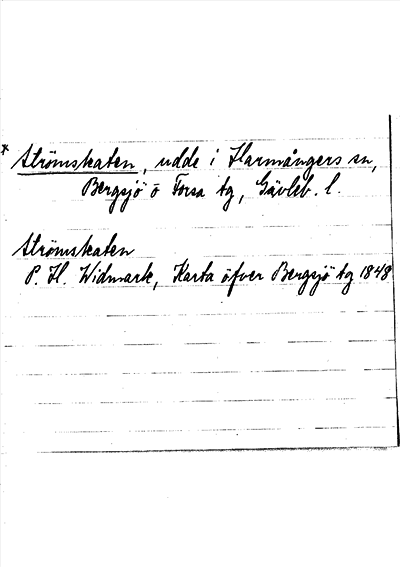 * Strömskaten, udde i Harmångers sn,
Bergsjö o Forsa tg, Gävleb. l.
Strömskaten
P. H. Widmark, Karta öfver Bergsjö tg 1848